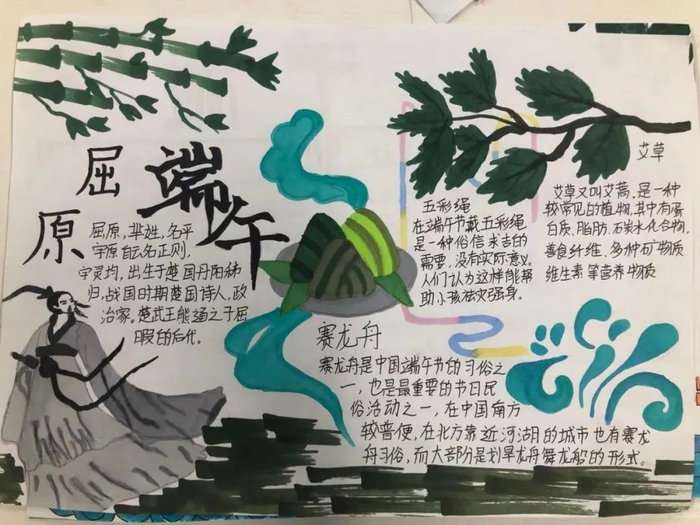 屈原
端午
屈原，芈姓，名平
字原 自云名正则，
字灵均，出生于楚国丹阳秭
归，战国时期楚国诗人，政
治家。楚武王熊通之子屈
瑕的后代。
五彩绳
在端午节戴五彩绳
是一种俗信求吉的
需要，没有实际意义，
人们认为这样能帮
助小孩祛灾强身。
艾草
艾草又叫艾蒿，是一种
较常见的植物，其中有蛋
白质、脂肪、碳水化合物，
膳食纤维、多种矿物质
维生素等营养物质
赛龙舟
赛龙舟是中国端午节的习俗之
一，也是最重要的节日民
俗活动之一，在中国南方
较普便，在北方靠近河湖的城市也有赛龙
舟习俗，而大部分是划旱龙舟舞龙船的形式。